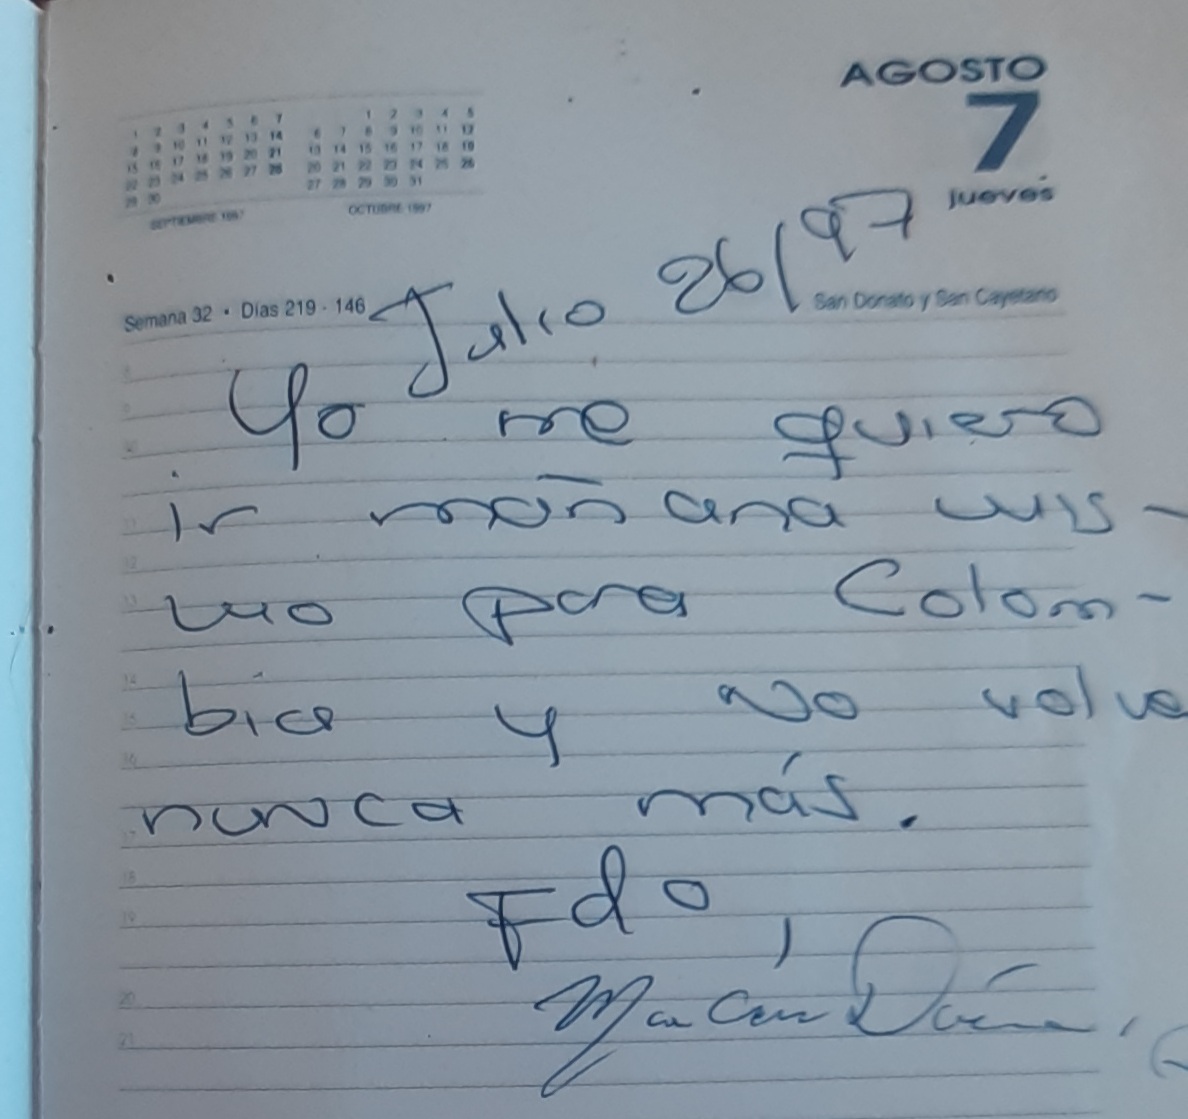 AGOSTO
7
jueves
1 2 3 4 5 6 7
8 9 10 11 12 13 14
15 16 17 18 19 20 21
22 23 24 25 26 27 28
29 30
SEPTIEMBRE 1997
1 2 3 4 5
6 7 8 9 10 11 12
13 14 15 16 17 18 19
20 21 22 23 24 25 26
27 28 29 30 31
OCTUBRE 1997
Semana 32 • Días 219 - 146
San Donato y San Cayetano
Julio 26/97
Yo me quiero
ir mañana mis-
mo para Colom-
bia y no volve
nunca más.
Fdo,